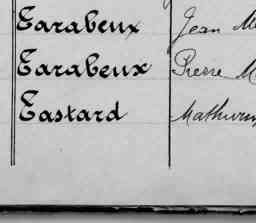 Tarabeux Jean
Tarabeux Pierre
Tastard Mathurin